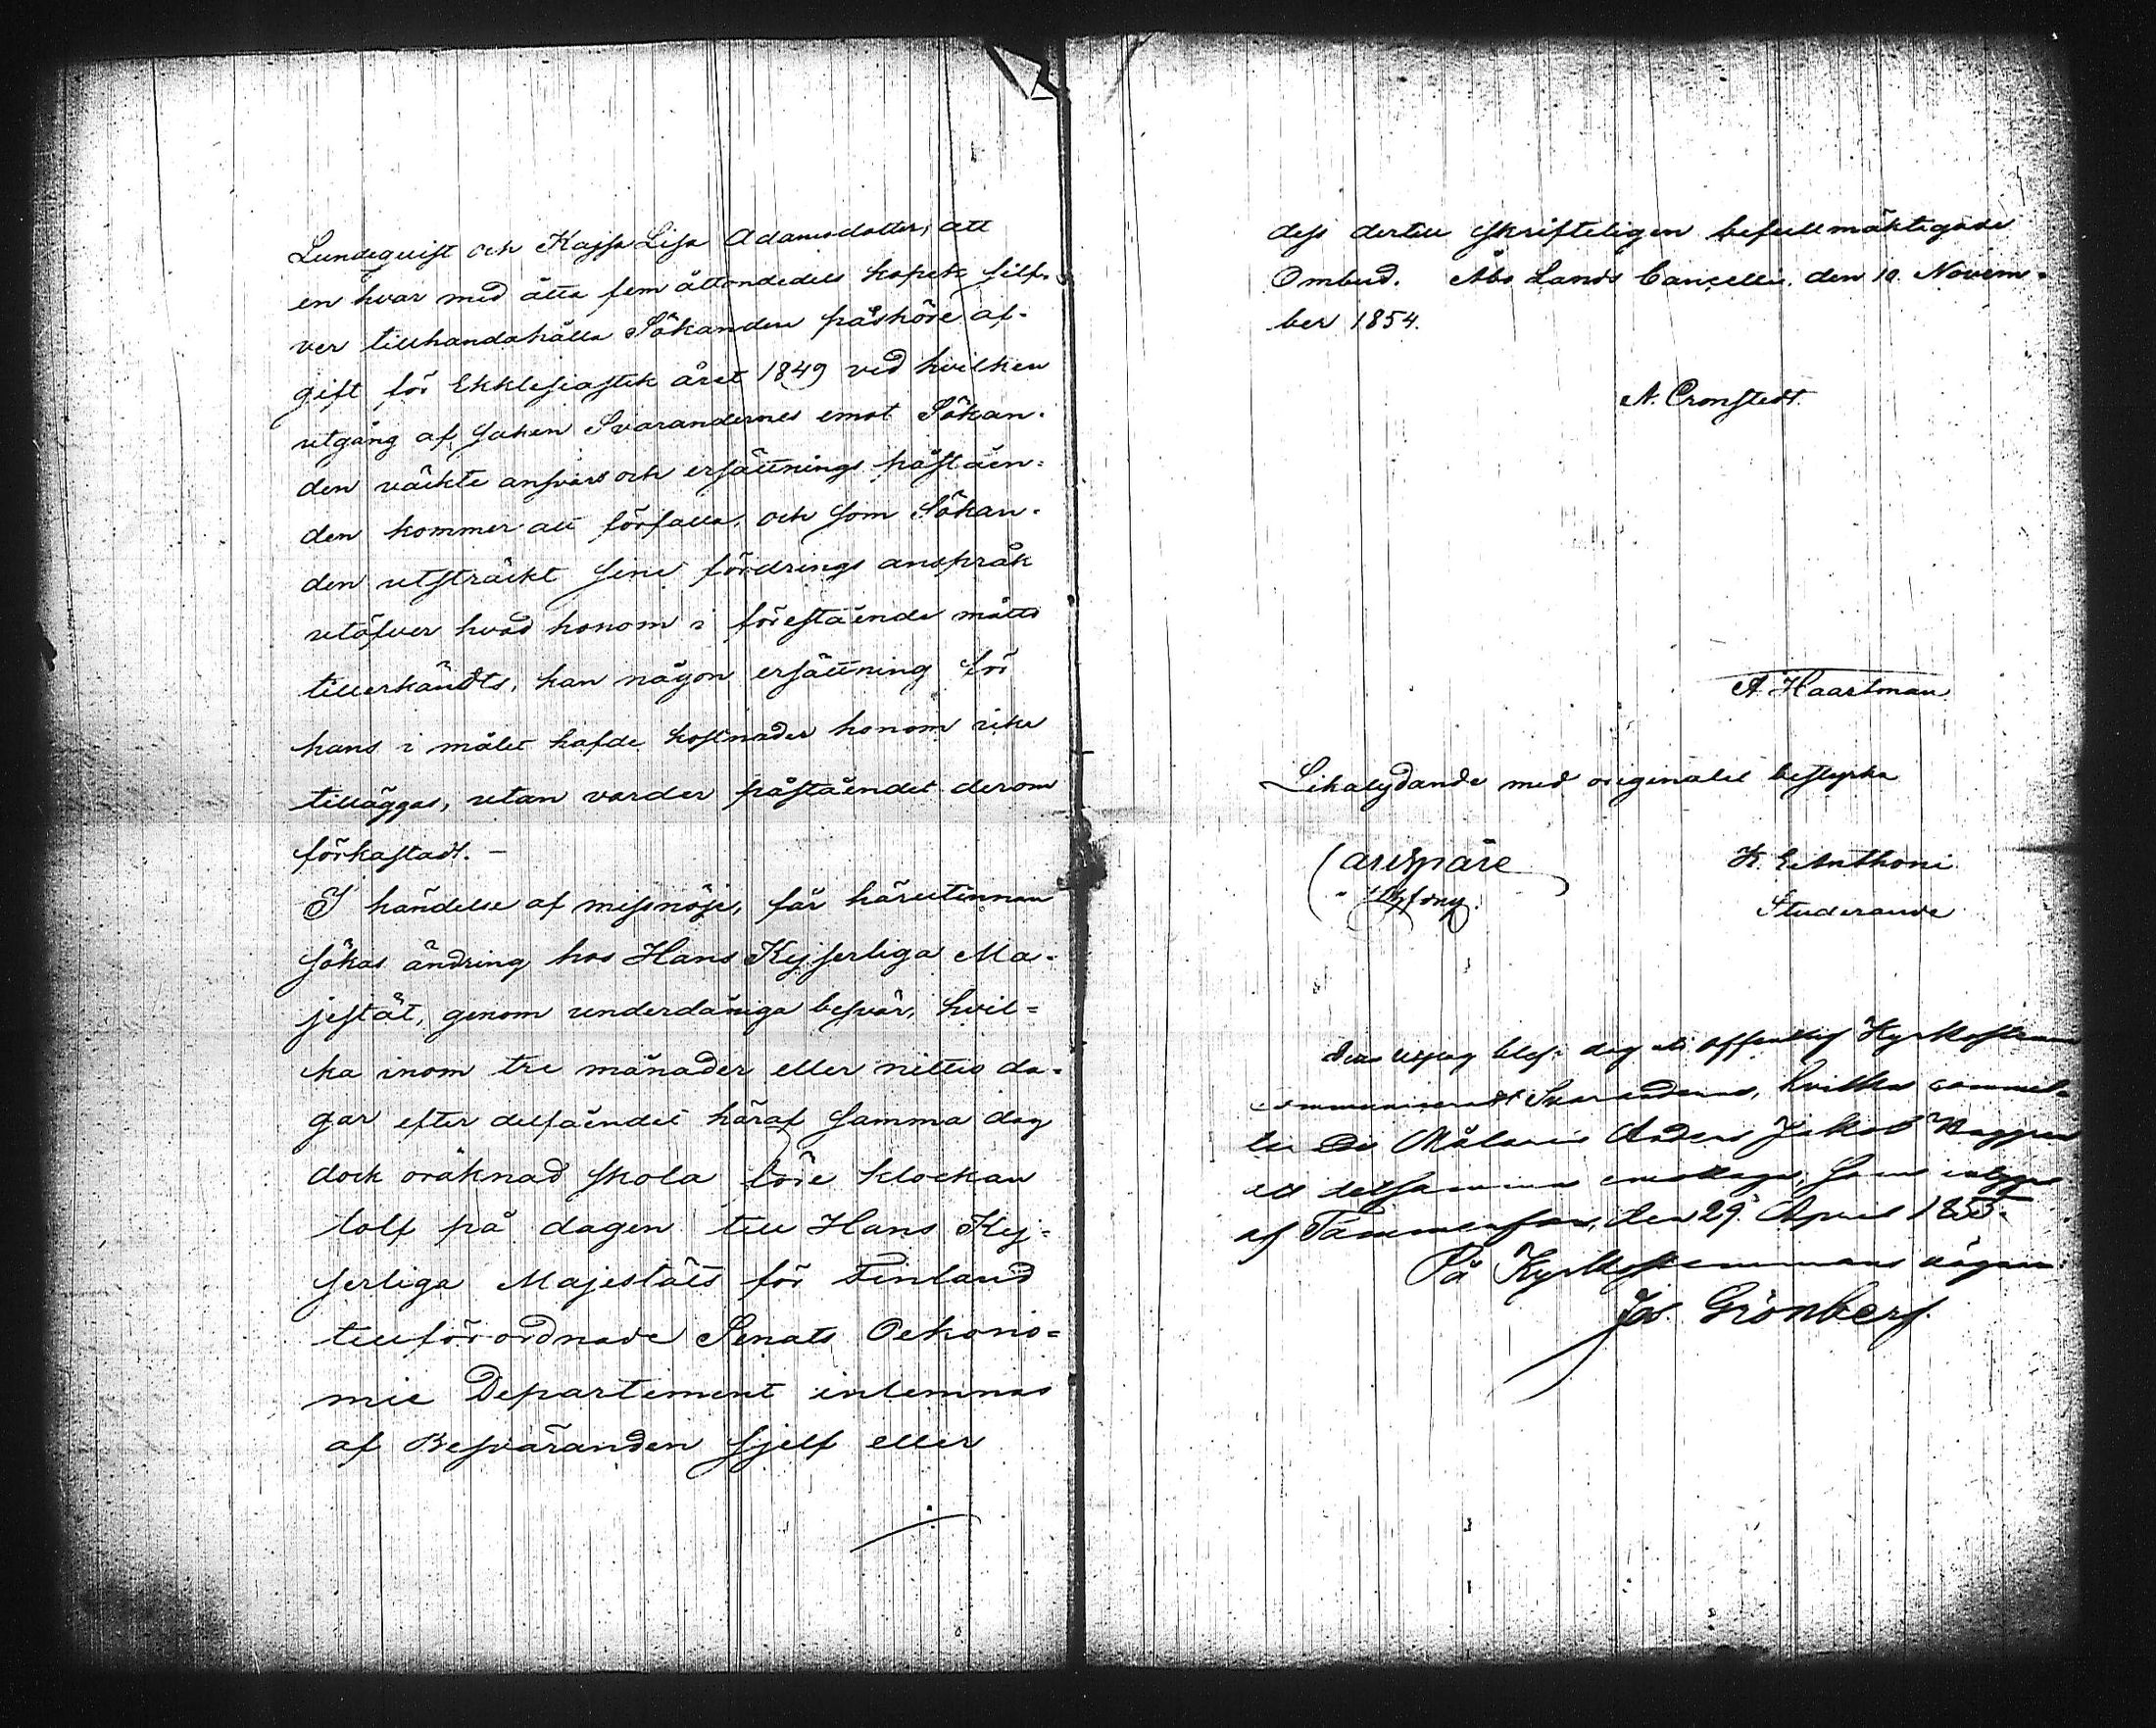 Lundequist och Kajsa Lisa Adamsdotter, att
en hvar med åtta fem åttondedels kopek silf-
ver tillhandahålla Sökanden påsköre af-
gift för Ekklesiastik året 1849 vid hvilken
utgång af saken Svarandernes emot Sökan-
den väckte ansvars och ersättnings påståen-
den kommer att förfalla, och som Sökan-
den utsträckt sine fordrings anspråk
utöfver hvad honom i förestående måtto
tillerkändts, kan någon ersättning för
hans i målet hafde kostnader honom icke
tilläggas, utan varder påståendet derom
förkastadt. –
I händelse af missnöje, får härutinnan
sökas ändring hos Hans Kejserliga Ma-
jestät, genom underdåniga besvär, hvil=
ka inom tre månader eller nittio da-
gar efter delfåendet häraf samma dag
dock oräknad skola före klockan
tolf på dagen till Hans Kej=
serliga Majestäts för Finland
tillförordnade Senats Oekono=
mie Departement inlemnas
af Besväranden sjelf eller
dess dertill skrifteligen befullmäktigade
Ombud. Åbo Lands Cancellie, den 10 Novem-
ber 1854.
A. Cronstedt.
A Haartman
Likalydande med originalet bestyrka
K. E Anthoni
Studerande
Detta utslag blef i dag vid offentlig Kyrkostämma
communiceradt Svarandena, hvilka
Målaren Anders Jakob
att detsamma emottaga, som intygas
af Tammerfors, den 29. April 1855.
På Kyrkostemmans vägnar:
Jos. Grönberg.